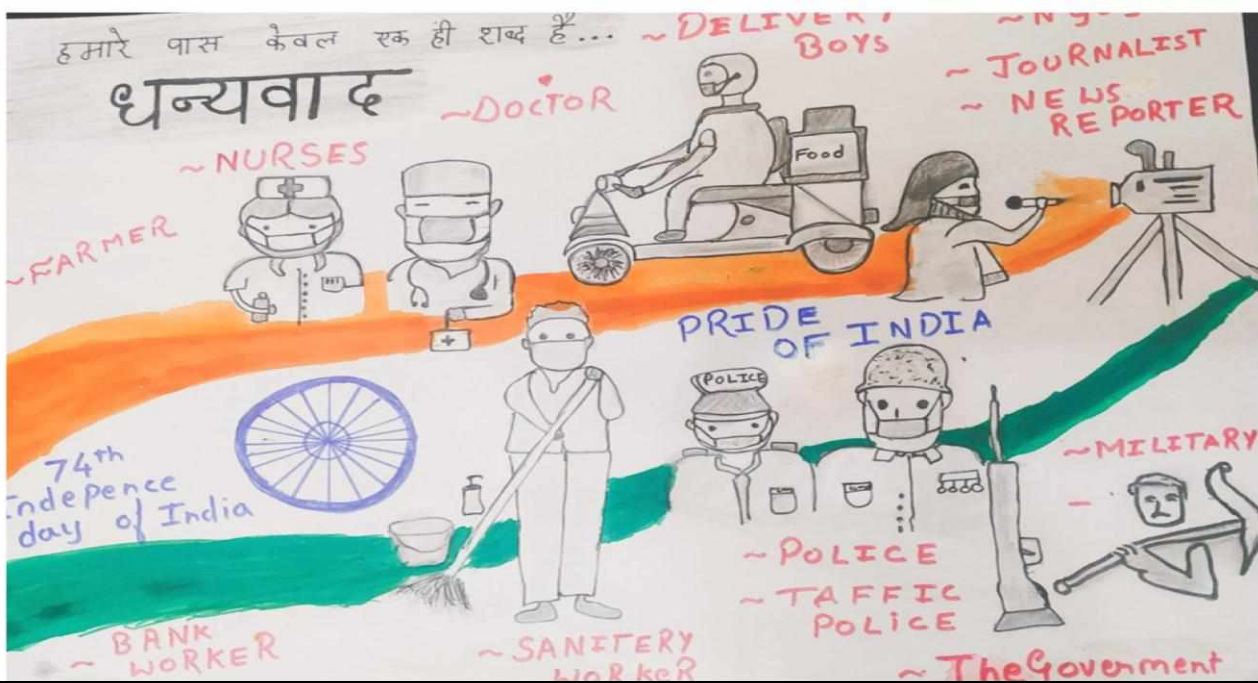 हमारे पास केवल एक ही शब्द है...
धन्यवाद
~DELIVERY
BOYS
~JOURNALIST
~NEWS
REPORTER
~DOCTOR
~NURSES
~FARMER
Food
PRIDE
OF INDIA
POLICE
74th
Indepence
day of India
~MILITARY
~POLICE
~TAFFIC
POLICE
~BANK
WORKER
~SANITERY
WORKER
~TheGoverment